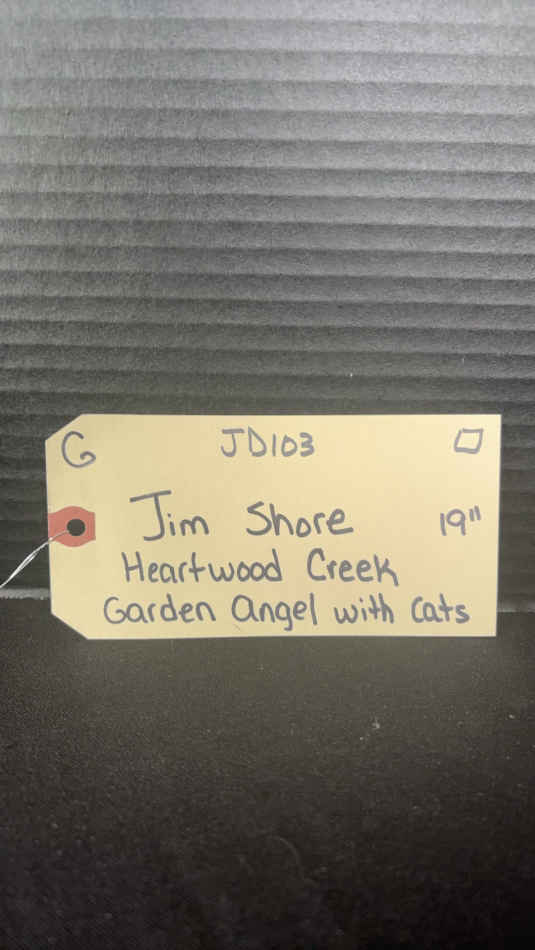 G JD103 □
Jim Shore 19"
Heartwood Creek
Garden Angel with Cats